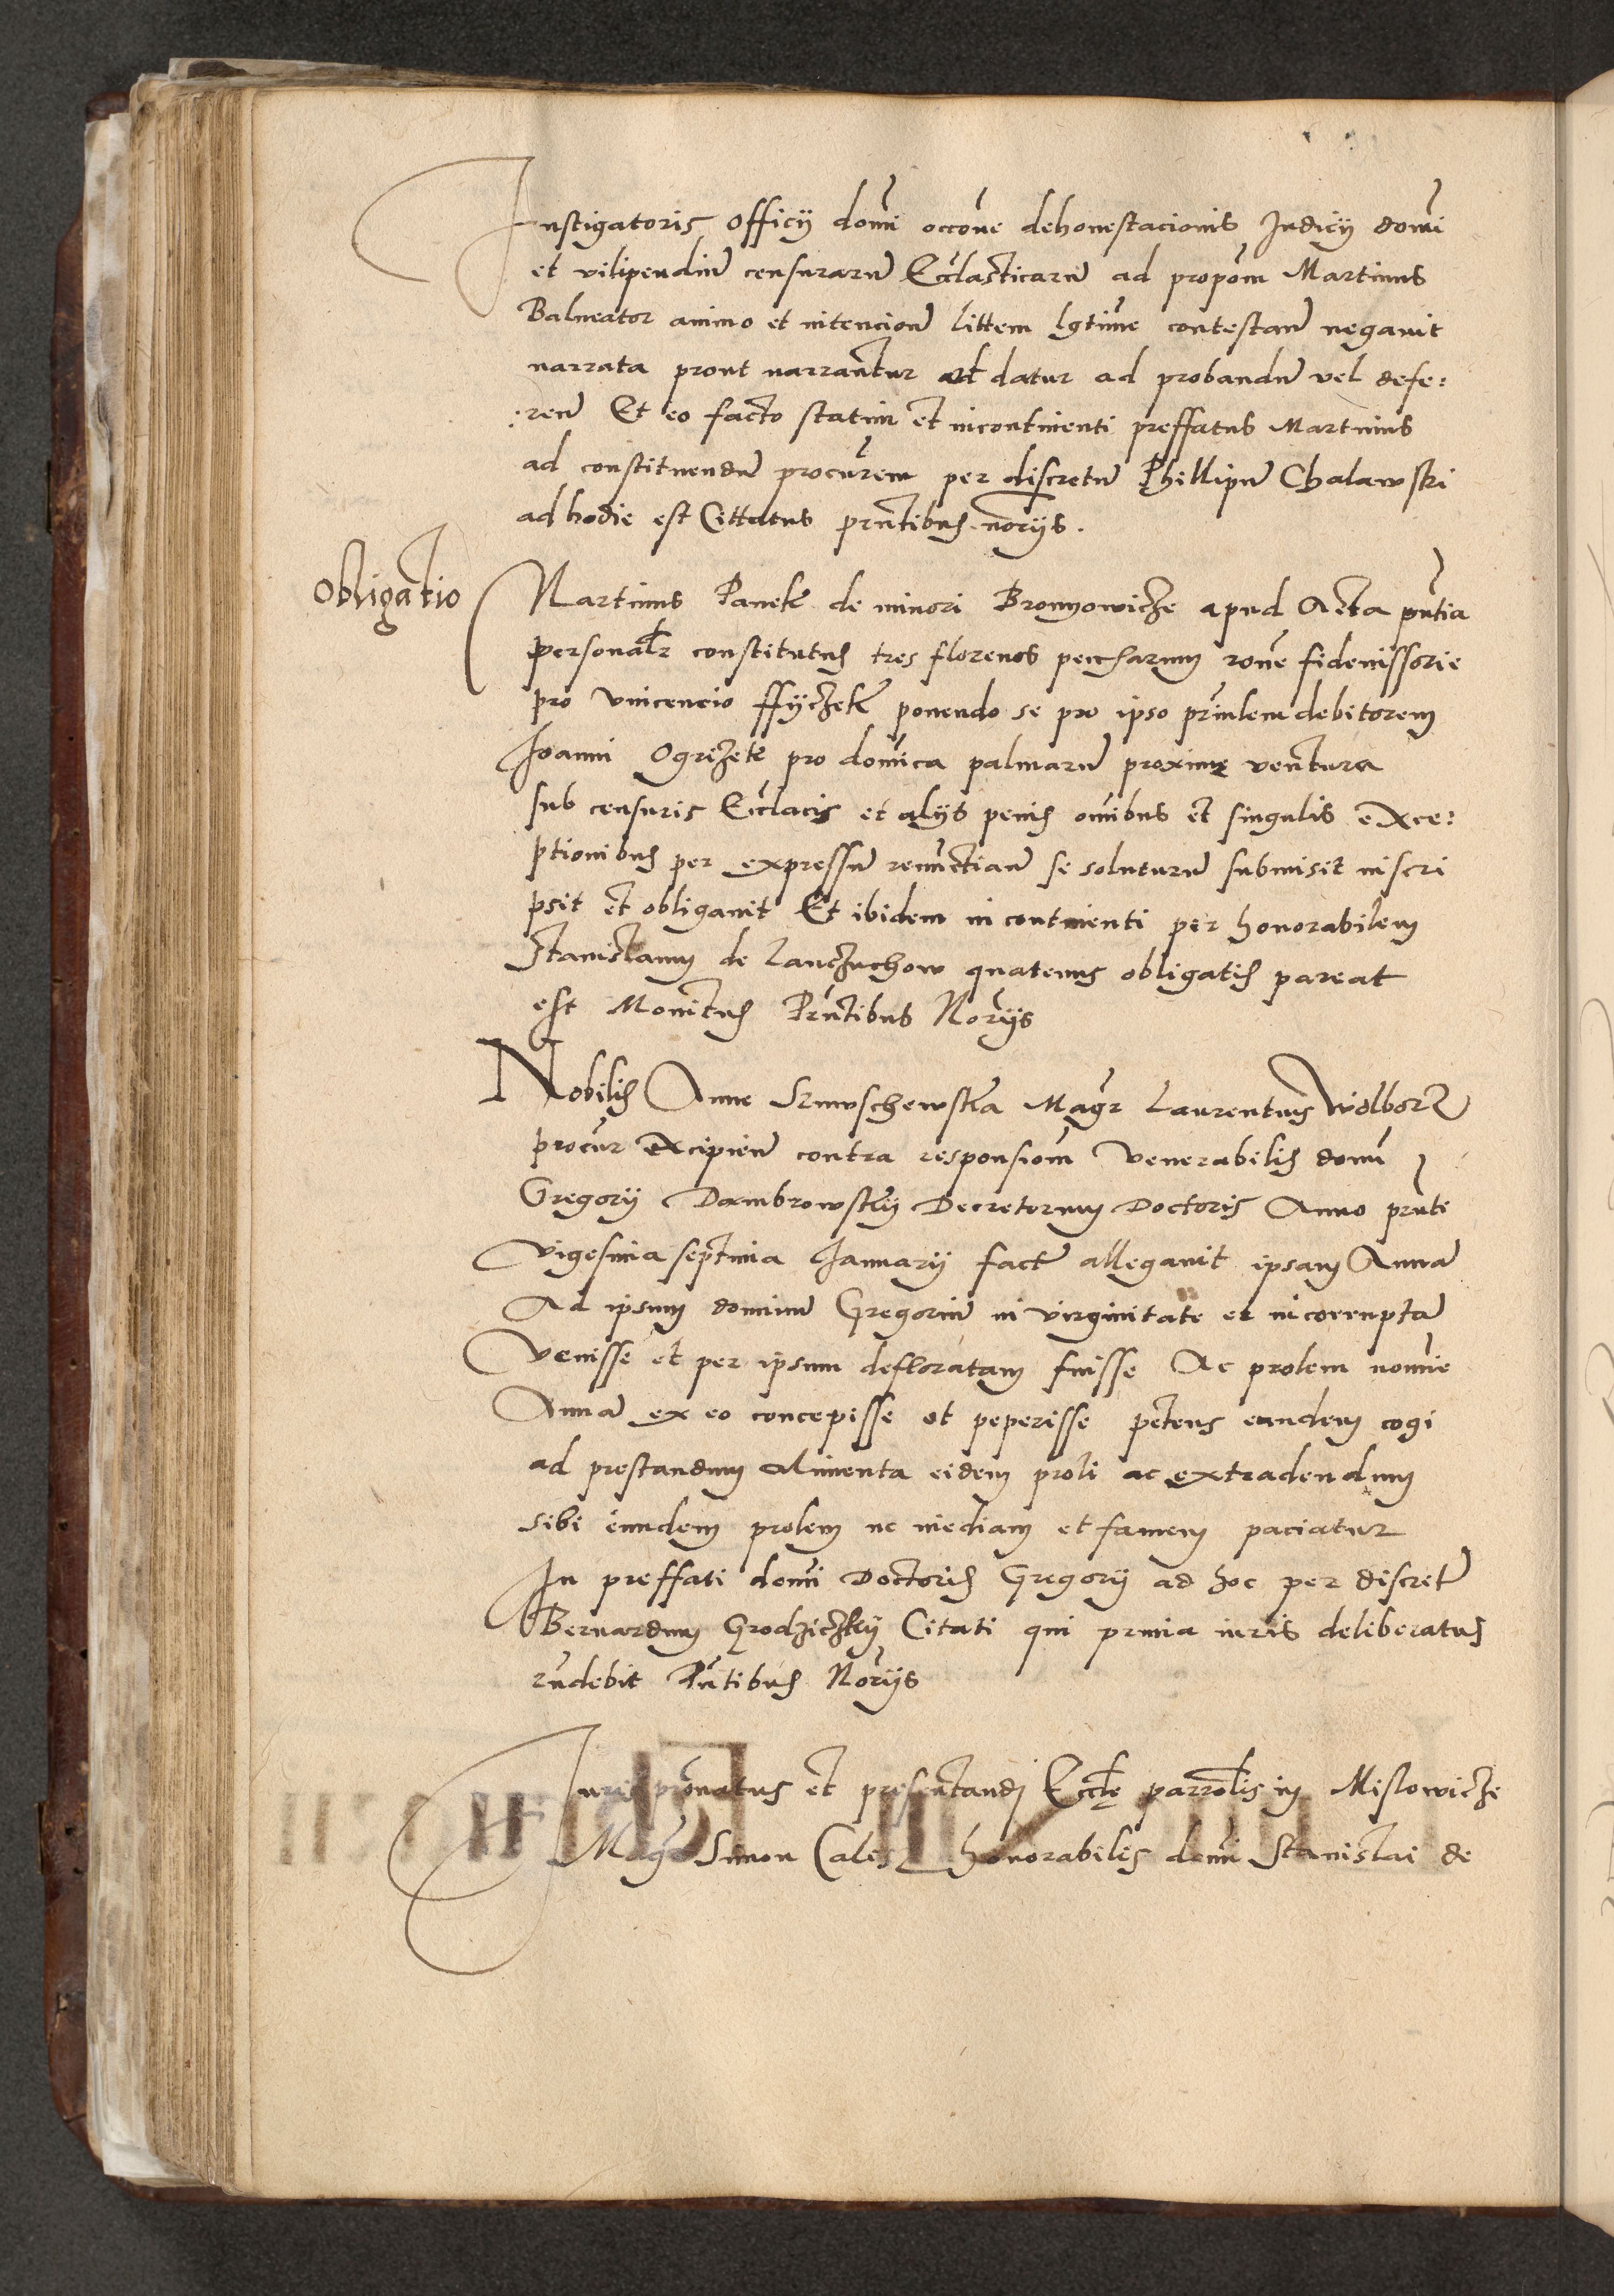 Instigatoris officij domi occone dehonestacionis Judicij domi
et vilipendium censurarum Ecclasticarum ad propom Martinus
Balneator animo et intencione littem lgtime contestan negavit
narrata prout narrantur at datur ad probandum vel defe:
:ren Et eo facto statim et incontinenti preffatus Martinus
ad constituendum procurem per discretum Phillipum Chalawski
ad hodie est Cittatus prntibus noryis.
Obligatio
Martinus Panek de minori Bronyowicze apud Acta pntia
personalr constitutus tres florenos peccharum rone fideiussorie
pro Vincencio ffyczek ponendo se pro ipso prinlem debitorem
Joanni Ogrizek pro domica palmarum proxime ventura
sub censuris Ecclacis et alys penis omibus et singulis exce:
ptionibus per expressum renunctian se soluturum submisit inscri
psit et obligavit Et ibidem in continenti per honorabilem
Stanislaum de Lanczuchow quatenus obligatis pareat
est Monitus Prntibus Noryis
Nobilis Anne Sznwschewska Magr Laurentius Wolborz
procur Excipien contra responsiom Venerabilis domi
Gregorij Dambrowskij Decretorum Doctoris Anno prnti
vigesima septima Januarij fact allegavit ipsam Annam
Ad ipsum dominum Gregorium in virginitate et incorruptam
venisse et per ipsum defloratam fuisse Ac prolem nomine
Annam ex eo concepisse et peperisse petens eundem cogi
ad prestandum alimenta eidem proli ac extradendum
sibi eundem prolem ne inediam et famem paciatur
In preffati domi Doctoris Gregorij ad hoc per discretum
Bernardum Grodziczkij Citati qui prima iuris deliberatus
rndebit Pntibus Noryis
Juris pronatus et presentandi Eccle parrolis in Mislowicze
Magr Simon Calisz honorabilis domi Stanislai de